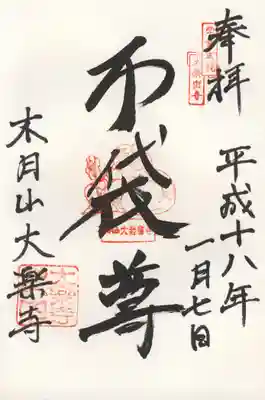 奉拝
平成十八年
一月七日
布袋尊
木月山大楽寺
大楽寺